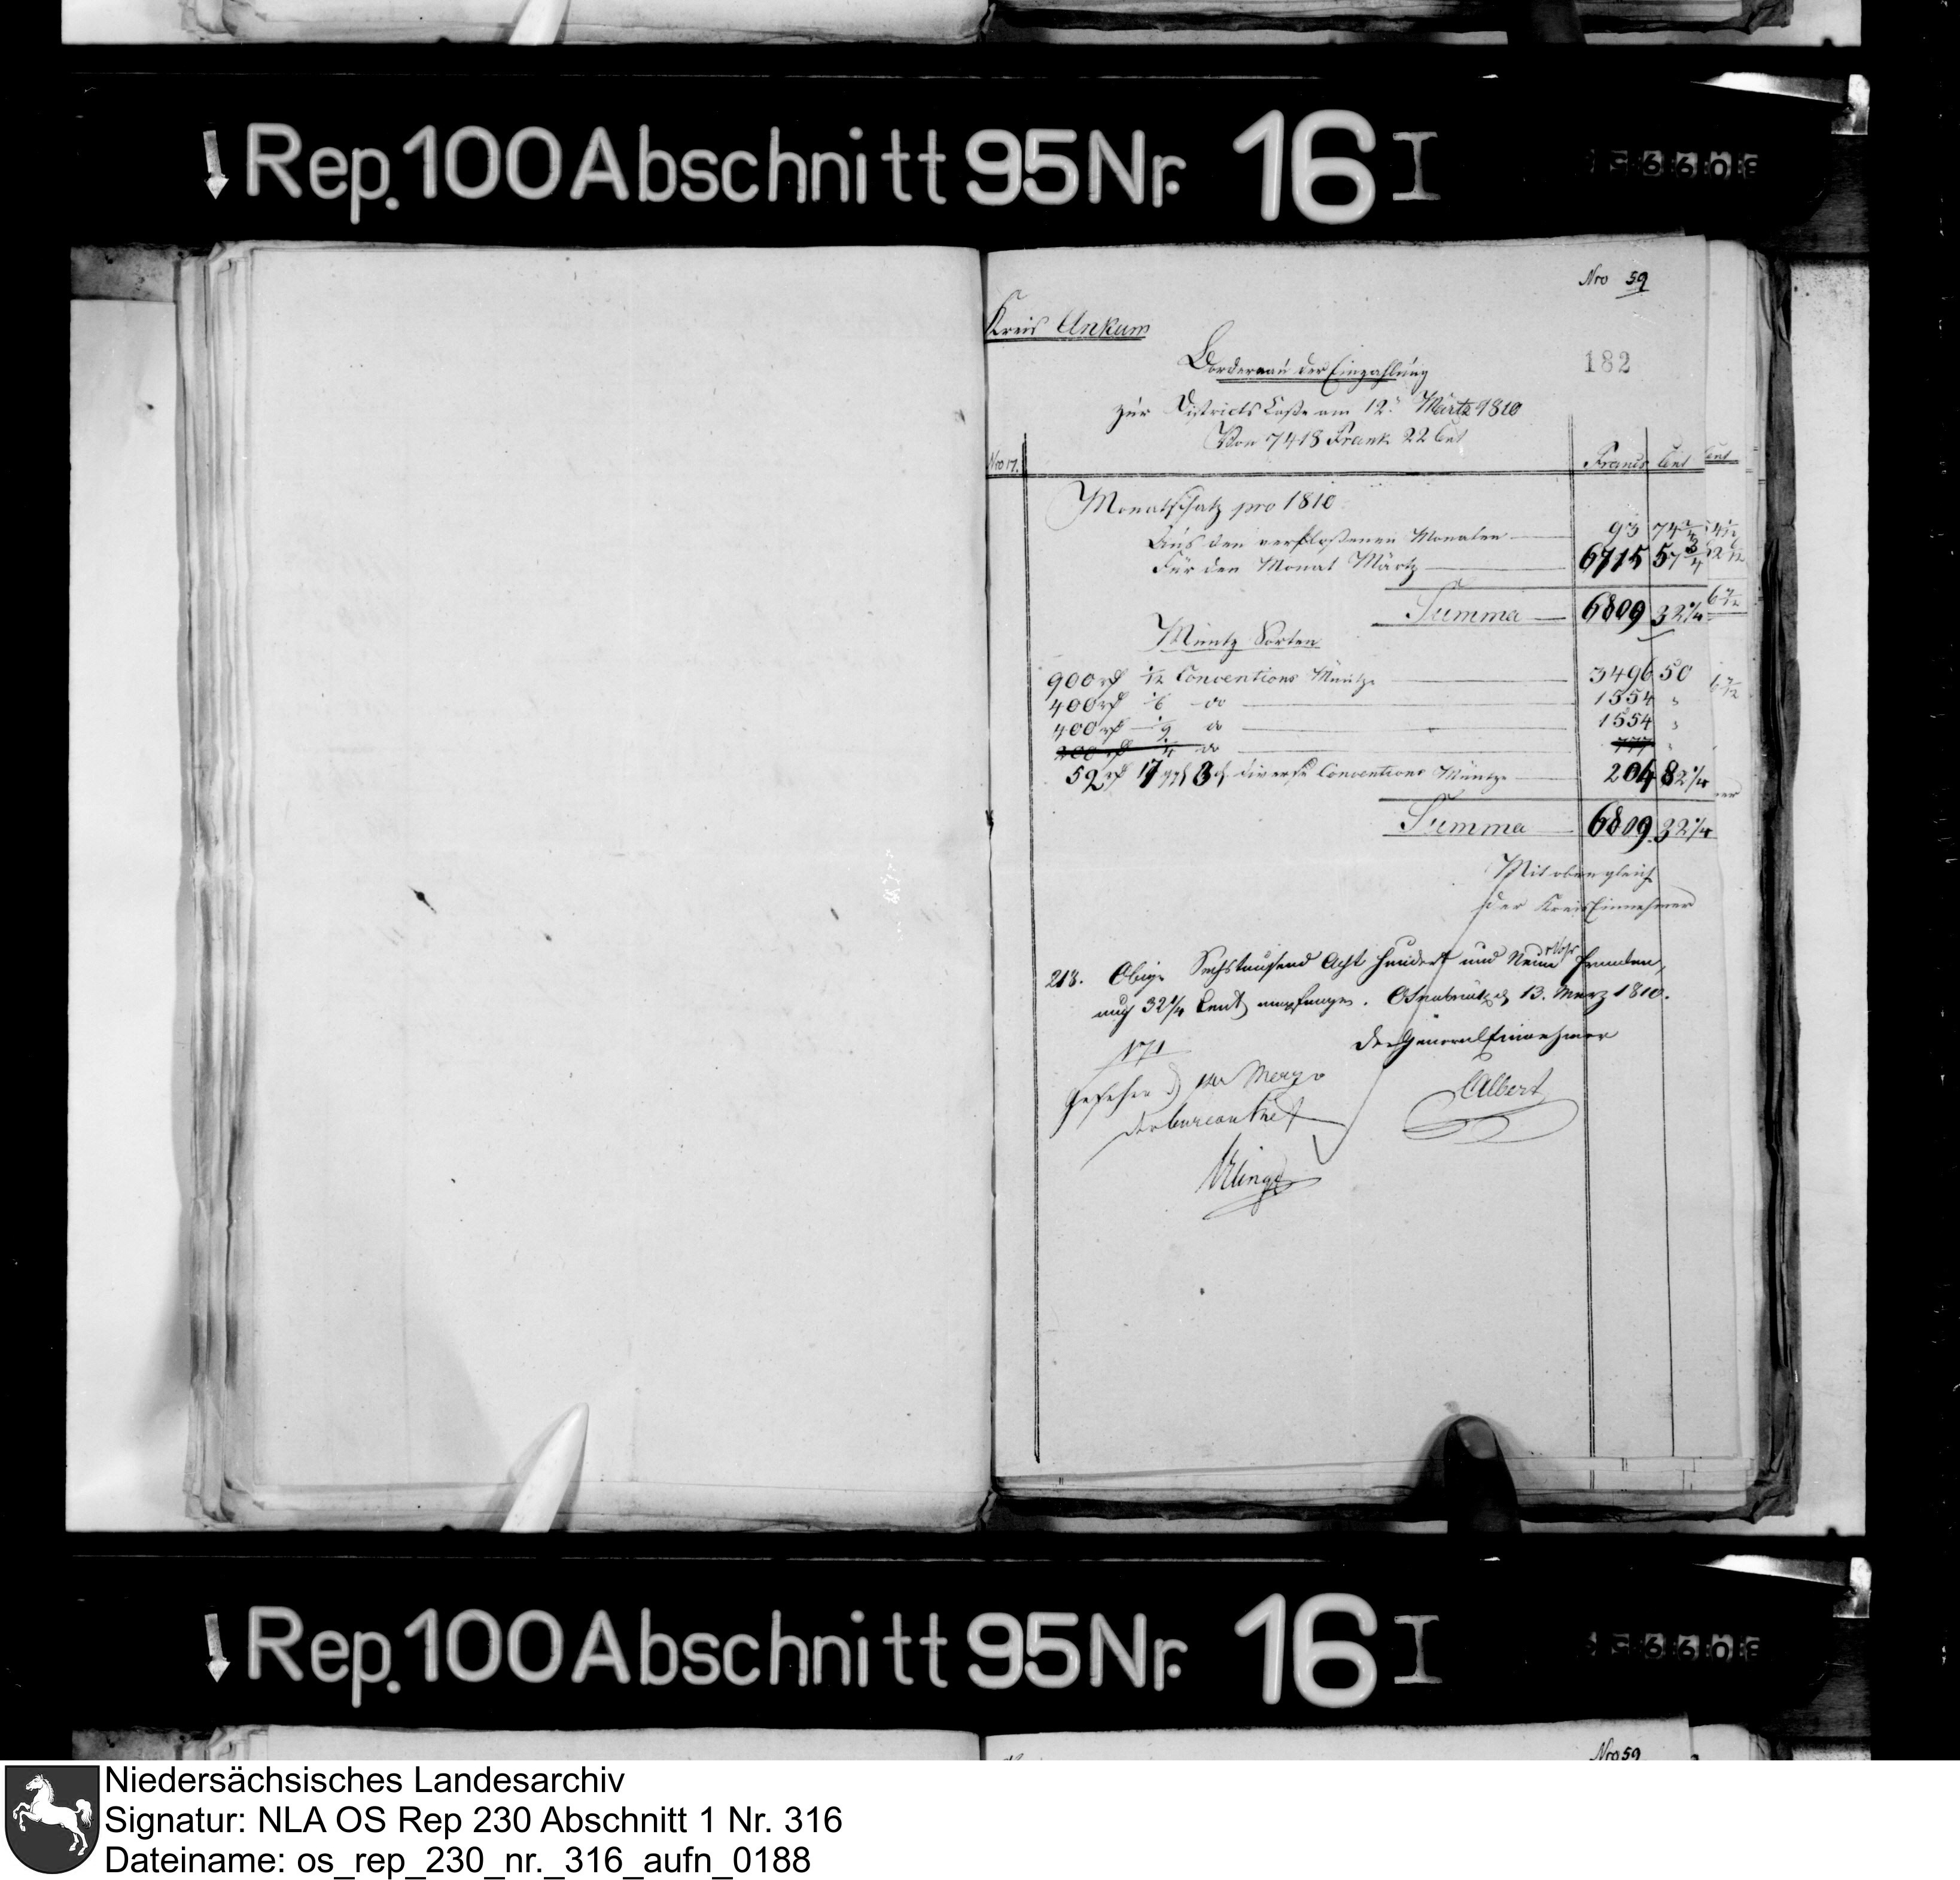 Rep. 100 Abschnitt 95 Nr. 16 I
Nro 59
Kreis Ankum
182
Bordereau der Einzahlung
zur Districts Casse am 12. Märtz 1810
Von 7418 Frank 22 Cent
Nro 17.
Francs Cent
Cent
Monatschatz pro 1810
Aus den verfloßenen Monaten 93 74 2/4
Für den Monat Märtz 6715 57 3/4
Summa 6809 32 1/4
Müntz Sorten
900 rthl 1/12 Conventions Müntze 3496 50
400 rthl 1/6 do 1554 "
400 rthl 1/3 do 1554 "
200 rthl 1/4 do 777 "
52 rthl 17 ggl 3 d diverse Conventions Müntze 204 82 1/4
Summa 6809 32 1/4
Mit oben gleich
der Kreis Einnehmer
218. Obige Sechstausend Acht Hundert und Neun Franken,
und 32 1/4 Cent empfangen. Osnabrück d 13. Merz 1810.
Der General Einnehmer
171
Gesehen d 14 Merz
der bureau Chef
CAlbert
Rep. 100 Abschnitt 95 Nr. 16 I
Nro 59
Niedersächsisches Landesarchiv
Signatur: NLA OS Rep 230 Abschnitt 1 Nr. 316
Dateiname: os_rep_230_nr._316_aufn_0188